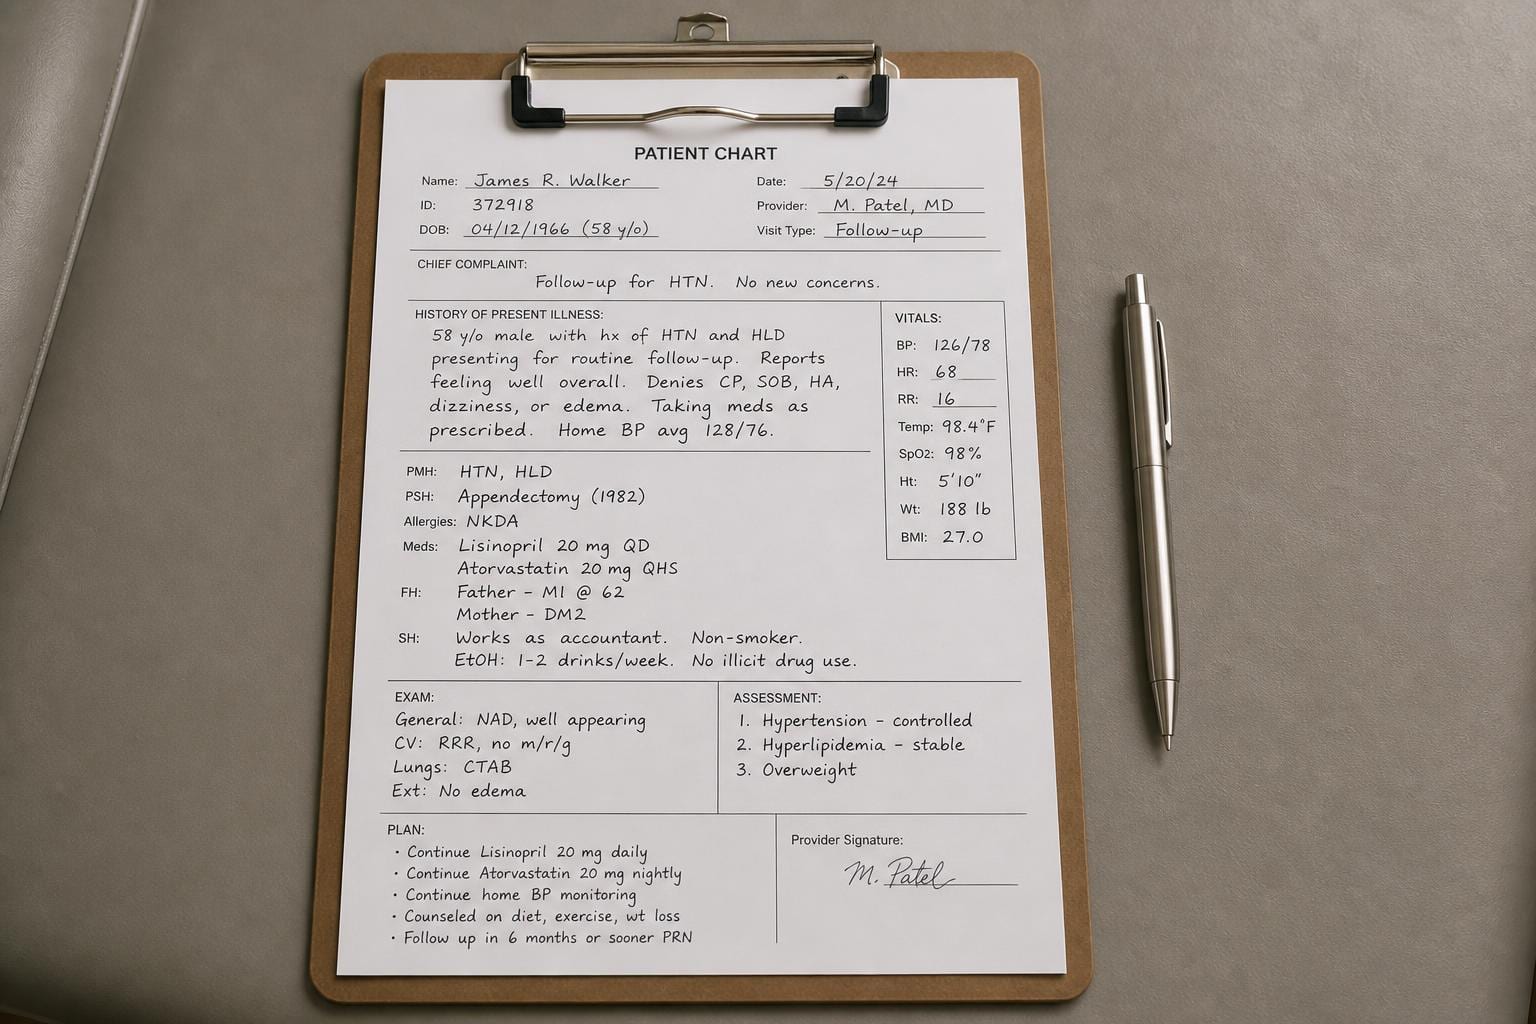 PATIENT CHART
Name: James R. Walker
Date: 5/20/24
ID: 372918
Provider: M. Patel, MD
DOB: 04/12/1966 (58 y/o)
Visit Type: Follow-up
CHIEF COMPLAINT:
Follow-up for HTN. No new concerns.
HISTORY OF PRESENT ILLNESS:
58 y/o male with hx of HTN and HLD
presenting for routine follow-up. Reports
feeling well overall. Denies CP, SOB, HA,
dizziness, or edema. Taking meds as
prescribed. Home BP avg 128/76.
VITALS:
BP: 126/78
HR: 68
RR: 16
Temp: 98.4°F
SpO2: 98%
Ht: 5'10"
Wt: 188 lb
BMI: 27.0
PMH: HTN, HLD
PSH: Appendectomy (1982)
Allergies: NKDA
Meds: Lisinopril 20 mg QD
Atorvastatin 20 mg QHS
FH: Father - MI @ 62
Mother - DM2
SH: Works as accountant. Non-smoker.
EtOH: 1-2 drinks/week. No illicit drug use.
EXAM:
General: NAD, well appearing
CV: RRR, no m/r/g
Lungs: CTAB
Ext: No edema
ASSESSMENT:
1. Hypertension - controlled
2. Hyperlipidemia - stable
3. Overweight
PLAN:
• Continue Lisinopril 20 mg daily
• Continue Atorvastatin 20 mg nightly
• Continue home BP monitoring
• Counseled on diet, exercise, wt loss
• Follow up in 6 months or sooner PRN
Provider Signature:
M. Patel